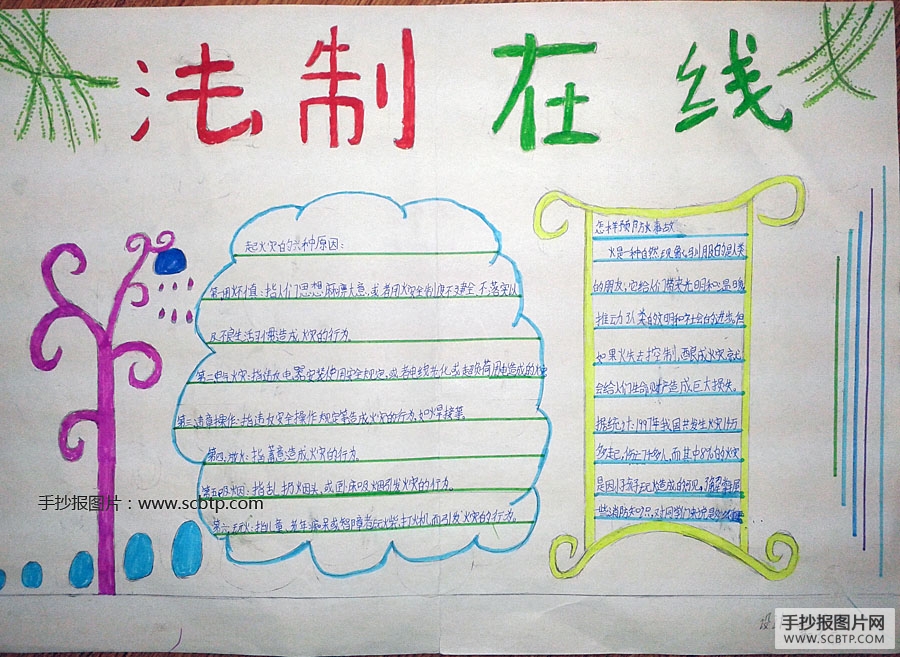 法制在线
起火灾的六种原因：
第一用火不慎：指人们思想麻痹大意，或者用火安全制度不健全、不落实以
及不良生活习惯造成火灾的行为。
第二电气火灾：指违反电器安装使用安全规定，或者电线老化或超负荷用电造成的火灾
第三违章操作：指违反安全操作规定等造成火灾的行为，如焊接等。
第四：放火：指蓄意造成火灾的行为。
第五吸烟：指乱扔烟头，或卧床吸烟引发火灾的行为。
第六玩火：指儿童、老年痴呆或智障者玩火柴、打火机而引发火灾的行为。
怎样预防火事故
火是一种自然现象，驯服的是人类
的朋友，它给人们带来光明和温暖
推动了人类的文明和社会的进步。但
如果火失去控制，酿成火灾，就
会给人们生命财产造成巨大损失。
据统计：1997年我国共发生火灾14万
多起，伤亡7千多人，而其中8%的火灾
是因孩子玩火造成的，可见，了解掌握
一些消防知识，对同学们来说是
手抄报图片：www.scbtp.com
手抄报图片网
WWW.SCBTP.COM